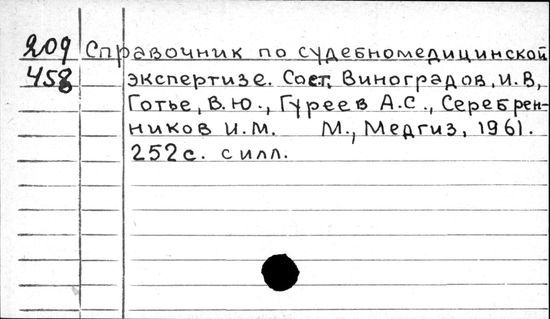 209 Справочник по судебномедицинской
458 экспертизе. Сост. Виноградов, И.В,
Готье, В.Ю., Гуреев А.С., Серебрен-
ников И.М. М., Медгиз, 1961.
252с. с илл.